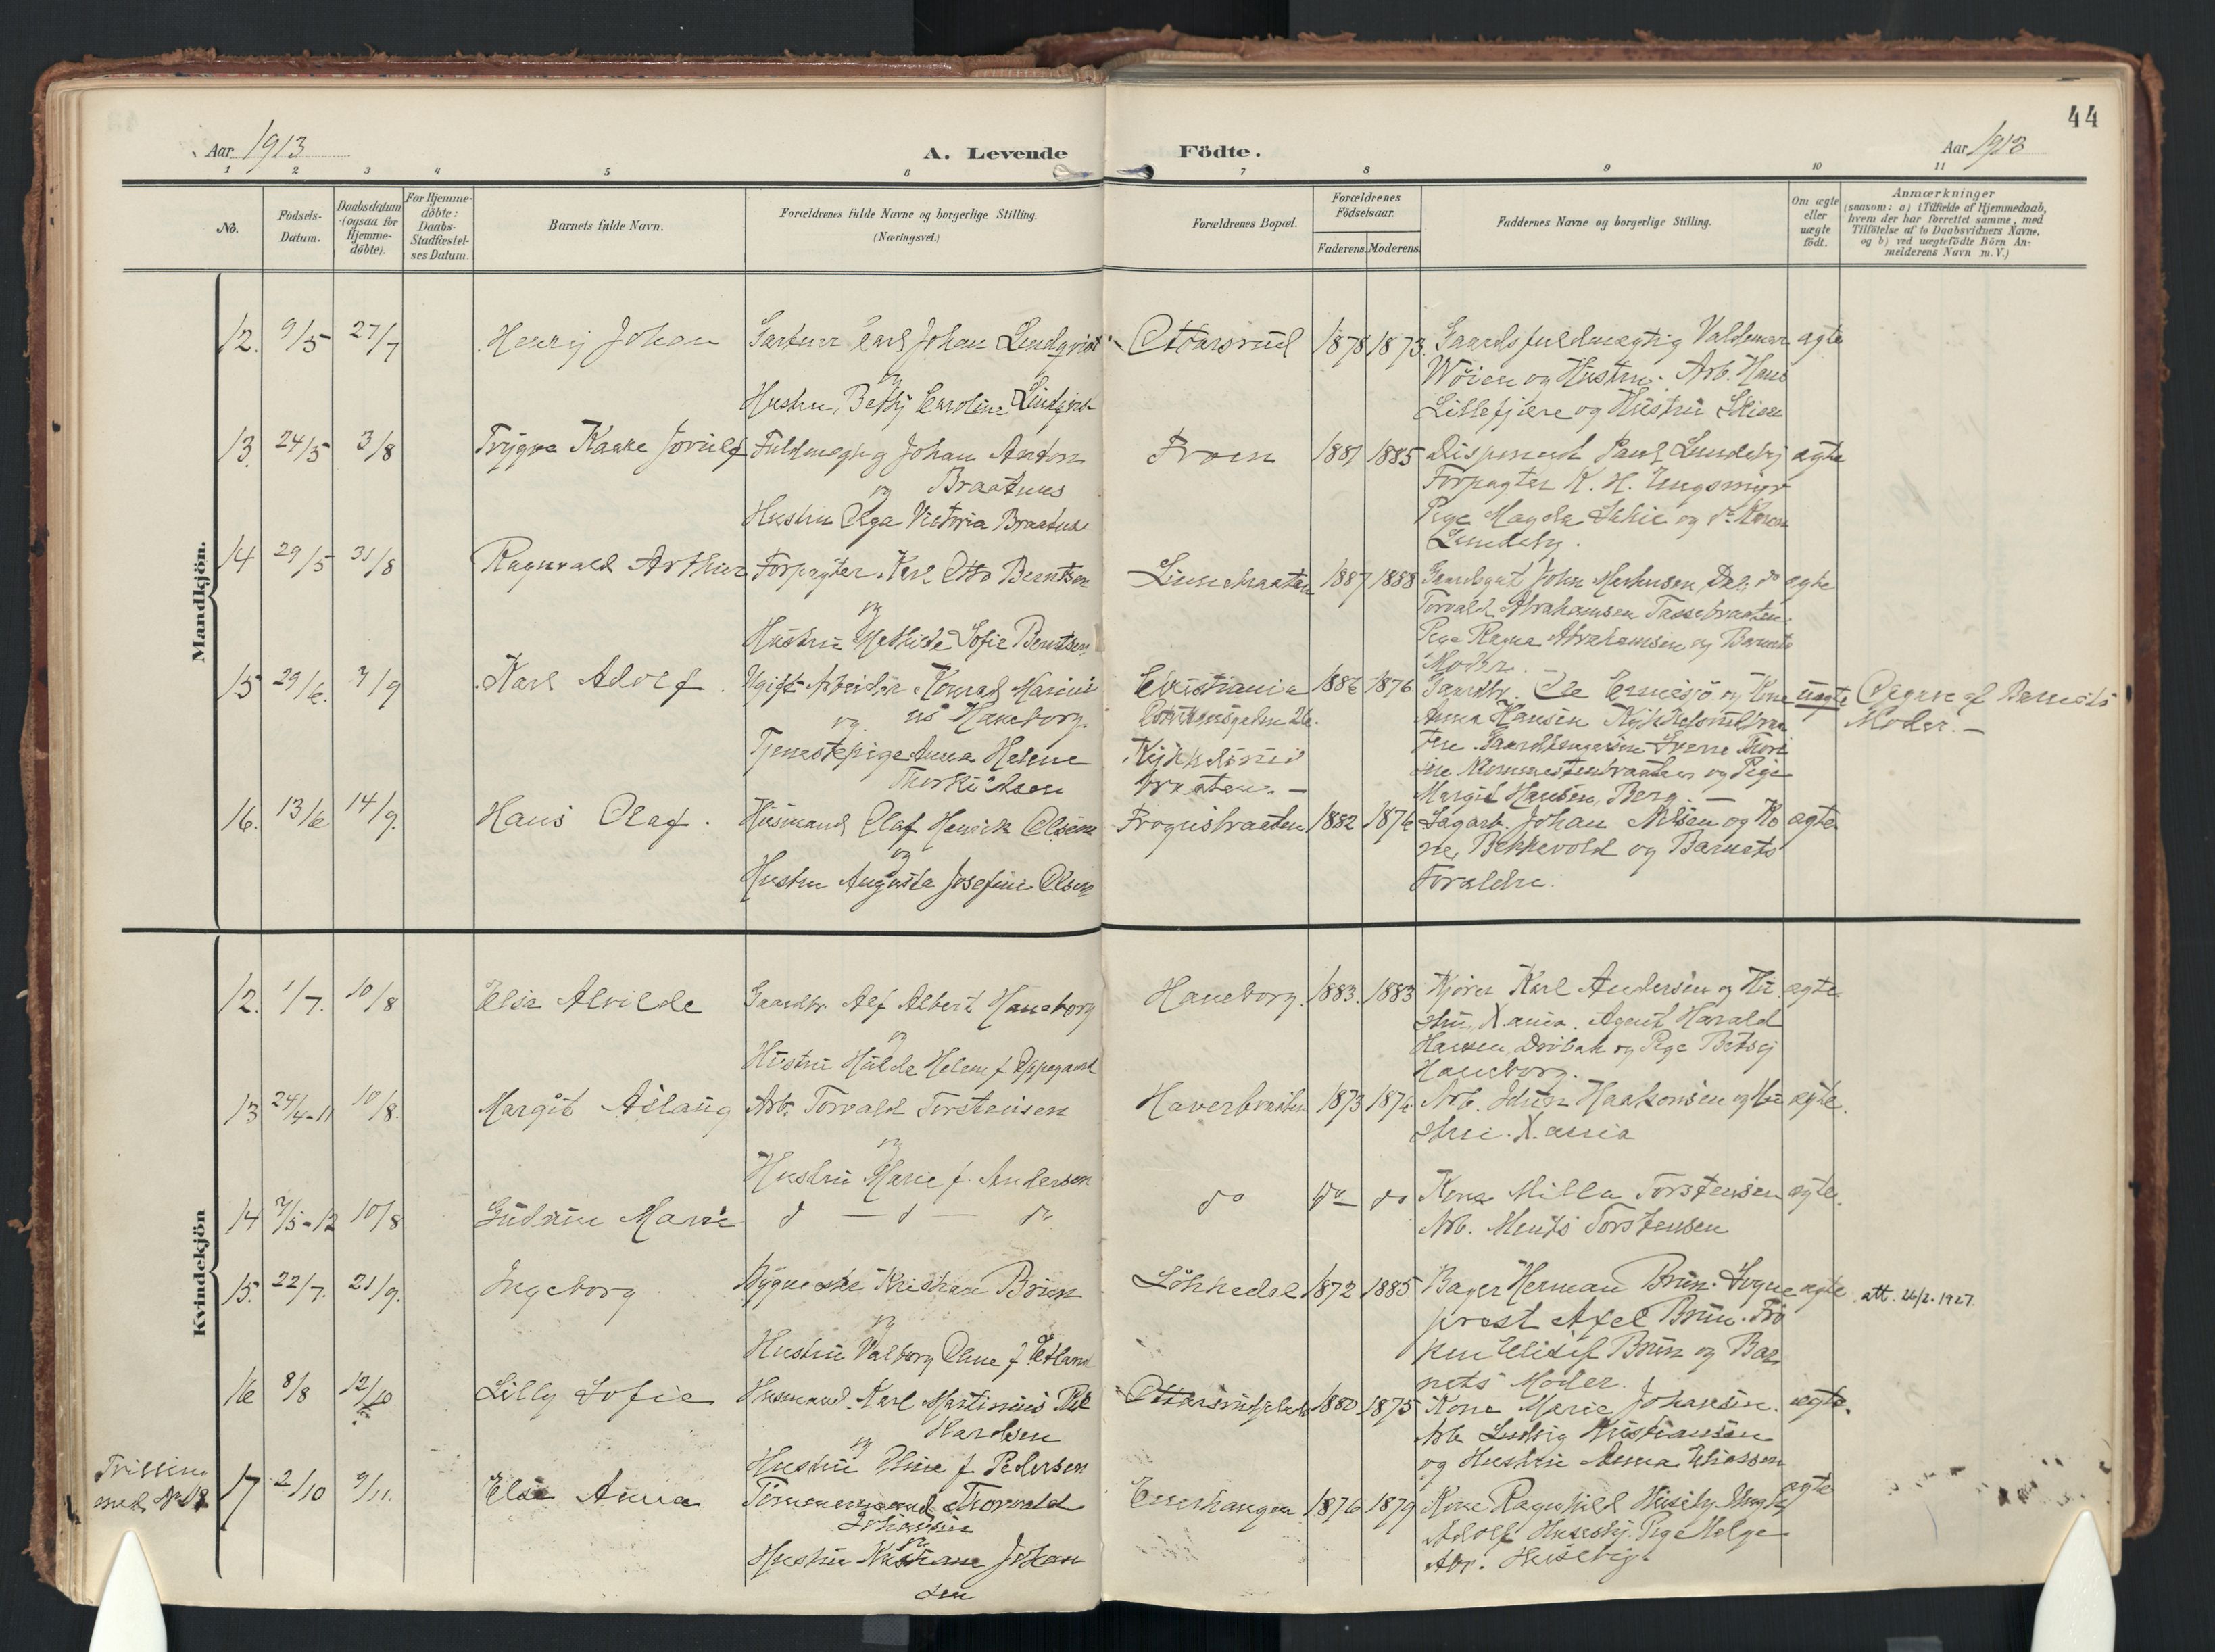 44
Aar 1913
A. Levende
Födte.
Aar 1913
1 2 3 4 5 6 7 8 9 10 11
No.
Födsels-
Datum.
Daabsdatum
(ogsaa for
Hjemme-
döbte).
For Hjemme-
döbte:
Daabs-
Stadfæstel-
ses Datum.
Barnets fulde Navn.
Forældrenes fulde Navne og borgerlige Stilling.
(Næringsvei.)
Forældrenes Bopæl.
Forældrenes
Födselsaar.
Faderens. Moderens.
Faddernes Navne og borgerlige Stilling.
Om ægte
eller
uægte
födt.
Anmærkninger
(saasom: a) i Tilfælde af Hjemmedaab,
hvem der har forrettet samme, med
Tilföielse af to Daabsvidners Navne,
og b) ved uægtefödte Börn An-
melderens Navn m. V.)
Mandkjön.
12. 9/5 27/7 Henry Johan
Gartner Carl Johan Lindqvist
og
Hustru Betty Caroline Lindqvist
Ottarsrud 1878 1873
Gaardsfuldmægtig Valdemar
Wöien og Hustru. Arb. Hans
Lillefjære og Hustru Skien
ægte
13. 24/5 3/8 Trygve Kaare Jorulf
Fuldmægtig Johan Anton
og Braatnes
Hustru Olga Victoria Braatnes
Froen 1881 1885
Disponent Paul Lundeby
Forpagter K. H. Engsmyr
Pige Magda Skie og do Karen
Lundeby.
ægte
14 29/5 31/8 Ragnvald Arthur
Forpagter Karl Otto Berntsen
og
Hustru Mathilde Sofie Berntsen
Lusebraaten 1887 1888
Gaardsgut John Markusen, Dal; do
Torvald Abrahamsen Tassebraaten.
Pige Ragna Abrahamsen og Barnets
Moder.
ægte
15 29/6. 7/9 Karl Adolf.
Ugift Arbeider Konrad Marini
og us Haneborg.
Tjenestepige Anna Helene
Thorkildsen
Christiania
26.
braaten. —
1886 1876
Gaardbr. Ole og Kone
Anna Hansen
Margit Hansen, Berg. —
uægte
Opgave af Barnets
Moder. —
16. 13/6 14/9. Hans Olaf.
Husmand Olaf Henrik Olsen
og
Hustru Augusta Josefine Olsen
Frognsbraaten 1882 1876
Sagarb. Johan Nilsen og Ko
ne, Bekkevold og Barnets
Forældre.
ægte
Kvindekjön
12. 1/7. 10/8 Elsa Alvilde
Gaardbr. Alf Albert Haneborg
og
Hustru Hulda Helene f. Oppegaard
Haneborg. 1883. 1883
Kjörer Karl Andersen og Hu
stru, X.ania. Agent Harald
Hansen, Dröbak og Pige Betsy
Haneborg.
ægte
13 24/4-11 10/8. Margit Aslaug
Arb. Torvald Torstensen
og
Hustru Marie f. Andersen
Haverbraaten 1873 1876
Arb. Johan Haakonsen og Hu
stru. X.ania
ægte.
14 7/5-12 10/8 Gudrun Marie
d — d — do
do do do
Kone Milla Torstensen
Arb. Ments Torstensen
ægte.
15. 22/7. 21/9. Ingeborg
Bygmester Kristian Bruun
og
Hustru Valborg Oline f. Etland
Lökkedal 1872 1885
Bager Herman Bruun. Sogne
prest Axel Bruun. Frö
ken Elisif Bruun og Bar
nets Moder.
ægte
att. 26/2. 1927.
16 8/8 12/10 Lilly Sofie
Husmand. Karl Martinius Ri
kardsen
og
Hustru Oline f. Pedersen
Ottarsrudplads 1880 1875
Kone Marie Johansen.
Arb Ludvig Kristiansen
og Hustru Anna Eliassen
ægte.
Trilling
med No 18
17 2/10 9/11. Else Anna
Tömmermand Thorvald
Johansen
og
Hustru Kristiane Johan
sen
1876 1879
Kone Ragnhild Huseby.
Adolf Huseby. Pige Helga
Huseby.
ægte